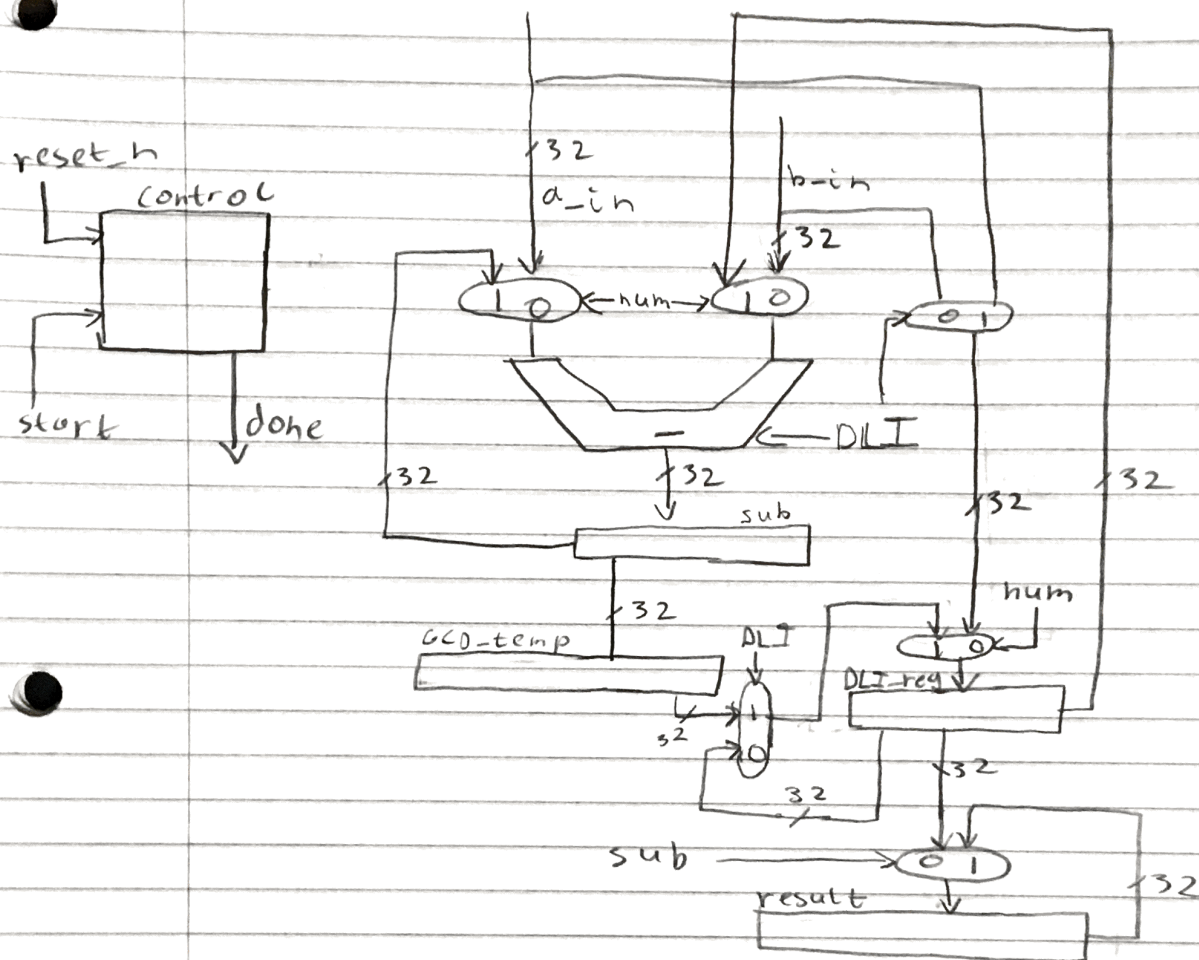 reset_n
control
start
done
32
a_in
b_in
32
1 0
num
1 0
0 1
-
DLI
32
32
32
32
sub
32
num
GCD_temp
DLI
1 0
DLI_reg
32
1
0
32
32
sub
0 1
32
result